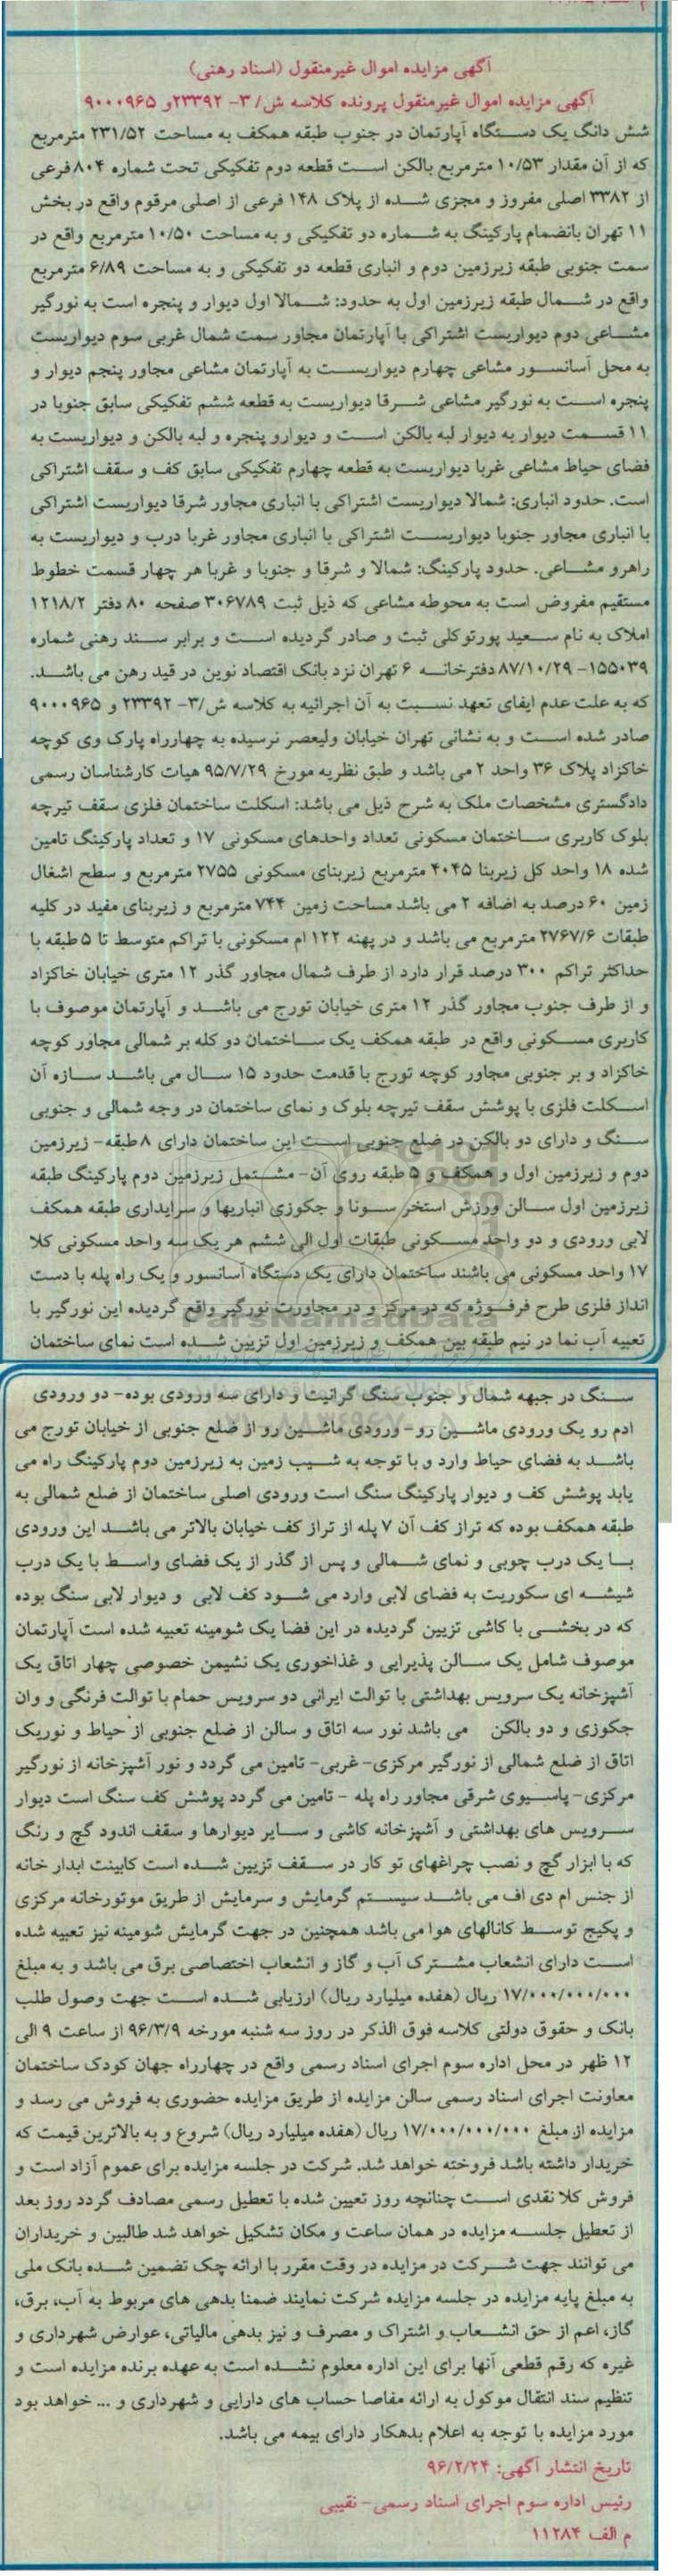 آگهی مزایده اموال غیرمنقول (اسناد رهنی)
آگهی مزایده اموال غیرمنقول پرونده کلاسه ش/ ۳- ۲۳۳۹۲و ۹۰۰۰۹۶۵
شش دانگ یک دستگاه آپارتمان در جنوب طبقه همکف به مساحت ۲۳۱/۵۲ مترمربع
که از آن مقدار ۱۰/۵۳ مترمربع بالکن است قطعه دوم تفکیکی تحت شماره ۸۰۴فرعی
از ۳۳۸۲ اصلی مفروز و مجزی شده از پلاک ۱۴۸ فرعی از اصلی مرقوم واقع در بخش
۱۱ تهران بانضمام پارکینگ به شماره دو تفکیکی و به مساحت ۱۰/۵۰ مترمربع واقع در
سمت جنوبی طبقه زیرزمین دوم و انباری قطعه دو تفکیکی و به مساحت ۶/۸۹ مترمربع
واقع در شمال طبقه زیرزمین اول به حدود: شمالا اول دیوار و پنجره است به نورگیر
مشاعی دوم دیواریست اشتراکی با آپارتمان مجاور سمت شمال غربی سوم دیواریست
به محل آسانسور مشاعی چهارم دیواریست به آپارتمان مشاعی مجاور پنجم دیوار و
پنجره است به نورگیر مشاعی شرقا دیواریست به قطعه ششم تفکیکی سابق جنوبا در
۱۱ قسمت دیوار به دیوار لبه بالکن است و دیوارو پنجره و لبه بالکن و دیواریست به
فضای حیاط مشاعی غربا دیواریست به قطعه چهارم تفکیکی سابق کف و سقف اشتراکی
است. حدود انباری: شمالا دیواریست اشتراکی با انباری مجاور شرقا دیواریست اشتراکی
با انباری مجاور جنوبا دیواریست اشتراکی با انباری مجاور غربا درب و دیواریست به
راهرو مشاعی. حدود پارکینگ: شمالا و شرقا و جنوبا و غربا هر چهار قسمت خطوط
مستقیم مفروض است به محوطه مشاعی که ذیل ثبت ۳۰۶۷۸۹ صفحه ۸۰ دفتر ۱۲۱۸/۲
املاک به نام سعید پورتوکلی ثبت و صادر گردیده است و برابر سند رهنی شماره
۱۵۵۰۳۹- ۸۷/۱۰/۲۹ دفترخانه ۶ تهران نزد بانک اقتصاد نوین در قید رهن می باشد.
که به علت عدم ایفای تعهد نسبت به آن اجرائیه به کلاسه ش/۳- ۲۳۳۹۲ و ۹۰۰۰۹۶۵
صادر شده است و به نشانی تهران خیابان ولیعصر نرسیده به چهارراه پارک وی کوچه
خاکزاد پلاک ۳۶ واحد ۲ می باشد و طبق نظریه مورخ ۹۵/۷/۲۹ هیات کارشناسان رسمی
دادگستری مشخصات ملک به شرح ذیل می باشد: اسکلت ساختمان فلزی سقف تیرچه
بلوک کاربری ساختمان مسکونی تعداد واحدهای مسکونی ۱۷ و تعداد پارکینگ تامین
شده ۱۸ واحد کل زیربنا ۴۰۴۵ مترمربع زیربنای مسکونی ۲۷۵۵ مترمربع و سطح اشغال
زمین ۶۰ درصد به اضافه ۲ می باشد مساحت زمین ۷۴۴ مترمربع و زیربنای مفید در کلیه
طبقات ۲۷۶۷/۶ مترمربع می باشد و در پهنه ۱۲۲ ام مسکونی با تراکم متوسط تا ۵ طبقه با
حداکثر تراکم ۳۰۰ درصد قرار دارد از طرف شمال مجاور گذر ۱۲ متری خیابان خاکزاد
و از طرف جنوب مجاور گذر ۱۲ متری خیابان تورج می باشد و آپارتمان موصوف با
کاربری مسکونی واقع در طبقه همکف یک ساختمان دو کله بر شمالی مجاور کوچه
خاکزاد و بر جنوبی مجاور کوچه تورج با قدمت حدود ۱۵ سال می باشد سازه آن
اسکلت فلزی با پوشش سقف تیرچه بلوک و نمای ساختمان در وجه شمالی و جنوبی
سنگ و دارای دو بالکن در ضلع جنوبی است این ساختمان دارای ۸ طبقه- زیرزمین
دوم و زیرزمین اول و همکف و ۵ طبقه روی آن- مشتمل زیرزمین دوم پارکینگ طبقه
زیرزمین اول سالن ورزش استخر سونا و جکوزی انباریها و سرایداری طبقه همکف
لابی ورودی و دو واحد مسکونی طبقات اول الی ششم هر یک سه واحد مسکونی کلا
۱۷ واحد مسکونی می باشند ساختمان دارای یک دستگاه آسانسور و یک راه پله با دست
انداز فلزی طرح فرفوژه که در مرکز و در مجاورت نورگیر واقع گردیده این نورگیر با
تعبیه آب نما در نیم طبقه بین همکف و زیرزمین اول تزیین شده است نمای ساختمان
سنگ در جبهه شمال و جنوب سنگ گرانیت و دارای سه ورودی بوده- دو ورودی
ادم رو یک ورودی ماشین رو- ورودی ماشین رو از ضلع جنوبی از خیابان تورج می
باشد به فضای حیاط وارد و با توجه به شیب زمین به زیرزمین دوم پارکینگ راه می
یابد پوشش کف و دیوار پارکینگ سنگ است ورودی اصلی ساختمان از ضلع شمالی به
طبقه همکف بوده که تراز کف آن ۷ پله از تراز کف خیابان بالاتر می باشد این ورودی
با یک درب چوبی و نمای شمالی و پس از گذر از یک فضای واسط با یک درب
شیشه ای سکوریت به فضای لابی وارد می شود کف لابی و دیوار لابی سنگ بوده
که در بخشی با کاشی تزیین گردیده در این فضا یک شومینه تعبیه شده است آپارتمان
موصوف شامل یک سالن پذیرایی و غذاخوری یک نشیمن خصوصی چهار اتاق یک
آشپزخانه یک سرویس بهداشتی با توالت ایرانی دو سرویس حمام با توالت فرنگی و وان
جکوزی و دو بالکن می باشد نور سه اتاق و سالن از ضلع جنوبی از حیاط و نوریک
اتاق از ضلع شمالی از نورگیر مرکزی- غربی- تامین می گردد و نور آشپزخانه از نورگیر
مرکزی- پاسیوی شرقی مجاور راه پله - تامین می گردد پوشش کف سنگ است دیوار
سرویس های بهداشتی و آشپزخانه کاشی و سایر دیوارها و سقف اندود گچ و رنگ
که با ابزار گچ و نصب چراغهای تو کار در سقف تزیین شده است کابینت ابدار خانه
از جنس ام دی اف می باشد سیستم گرمایش و سرمایش از طریق موتورخانه مرکزی
و پکیج توسط کانالهای هوا می باشد همچنین در جهت گرمایش شومینه نیز تعبیه شده
است دارای انشعاب مشترک آب و گاز و انشعاب اختصاصی برق می باشد و به مبلغ
۱۷/۰۰۰/۰۰۰/۰۰۰ ریال (هفده میلیارد ریال) ارزیابی شده است جهت وصول طلب
بانک و حقوق دولتی کلاسه فوق الذکر در روز سه شنبه مورخه ۹۶/۳/۹ از ساعت ۹ الی
۱۲ ظهر در محل اداره سوم اجرای اسناد رسمی واقع در چهارراه جهان کودک ساختمان
معاونت اجرای اسناد رسمی سالن مزایده از طریق مزایده حضوری به فروش می رسد و
مزایده از مبلغ ۱۷/۰۰۰/۰۰۰/۰۰۰ ریال (هفده میلیارد ریال) شروع و به بالاترین قیمت که
خریدار داشته باشد فروخته خواهد شد. شرکت در جلسه مزایده برای عموم آزاد است و
فروش کلا نقدی است چنانچه روز تعیین شده با تعطیل رسمی مصادف گردد روز بعد
از تعطیل جلسه مزایده در همان ساعت و مکان تشکیل خواهد شد طالبین و خریداران
می توانند جهت شرکت در مزایده در وقت مقرر با ارائه چک تضمین شده بانک ملی
به مبلغ پایه مزایده در جلسه مزایده شرکت نمایند ضمنا بدهی های مربوط به آب، برق،
گاز، اعم از حق انشعاب و اشتراک و مصرف و نیز بدهی مالیاتی، عوارض شهرداری و
غیره که رقم قطعی آنها برای این اداره معلوم نشده است به عهده برنده مزایده است و
تنظیم سند انتقال موکول به ارائه مفاصا حساب های دارایی و شهرداری و ... خواهد بود
مورد مزایده با توجه به اعلام بدهکار دارای بیمه می باشد.
تاریخ انتشار آگهی: ۹۶/۲/۲۴
رئیس اداره سوم اجرای اسناد رسمی- نقیبی
م الف ۱۱۲۸۴
ParsNamadData